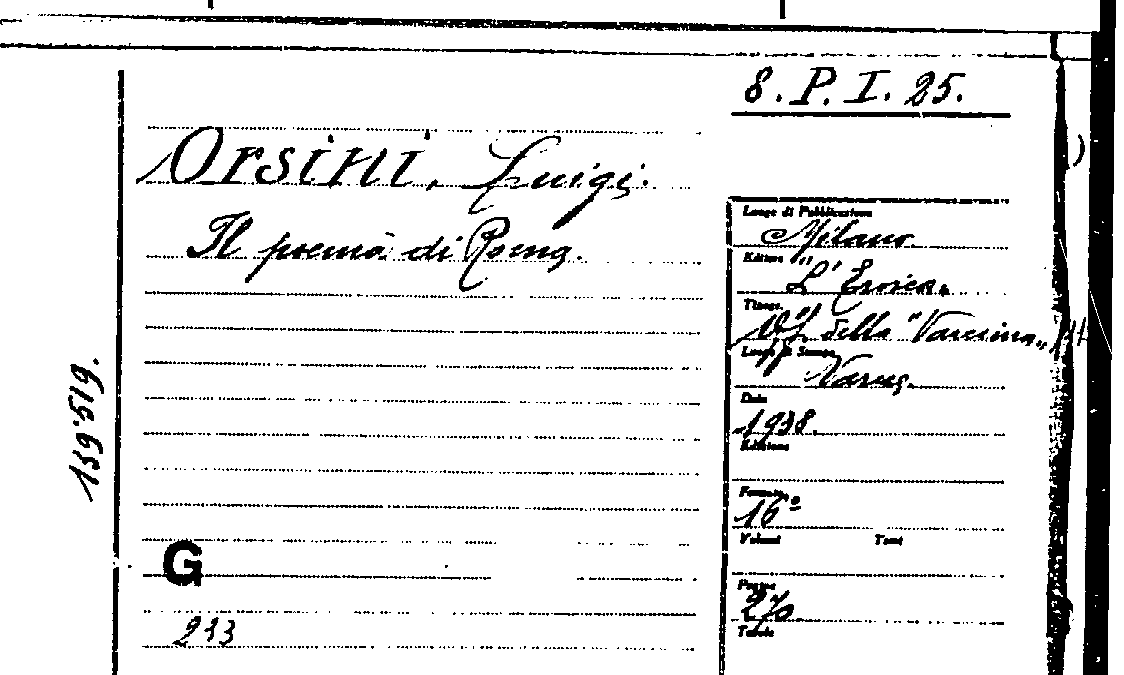 8. P. I. 25.
Orsini, Luigi.
Il poema di Roma.
Luogo di Pubblicazione
Milano.
Editore
"L' Eroica„
Tipogr.
della "Varesina„
Luogo di Stampa
Varese.
Data
1938.
Edizione
Formato
16°
Volumi Tomi
Pagine
270
Tavole
159.519.
G
213